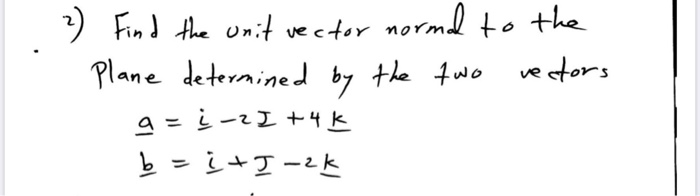 2) Find the unit vector normal to the
Plane determined by the two vectors
a = i - 2J + 4k
b = i + J - 2k